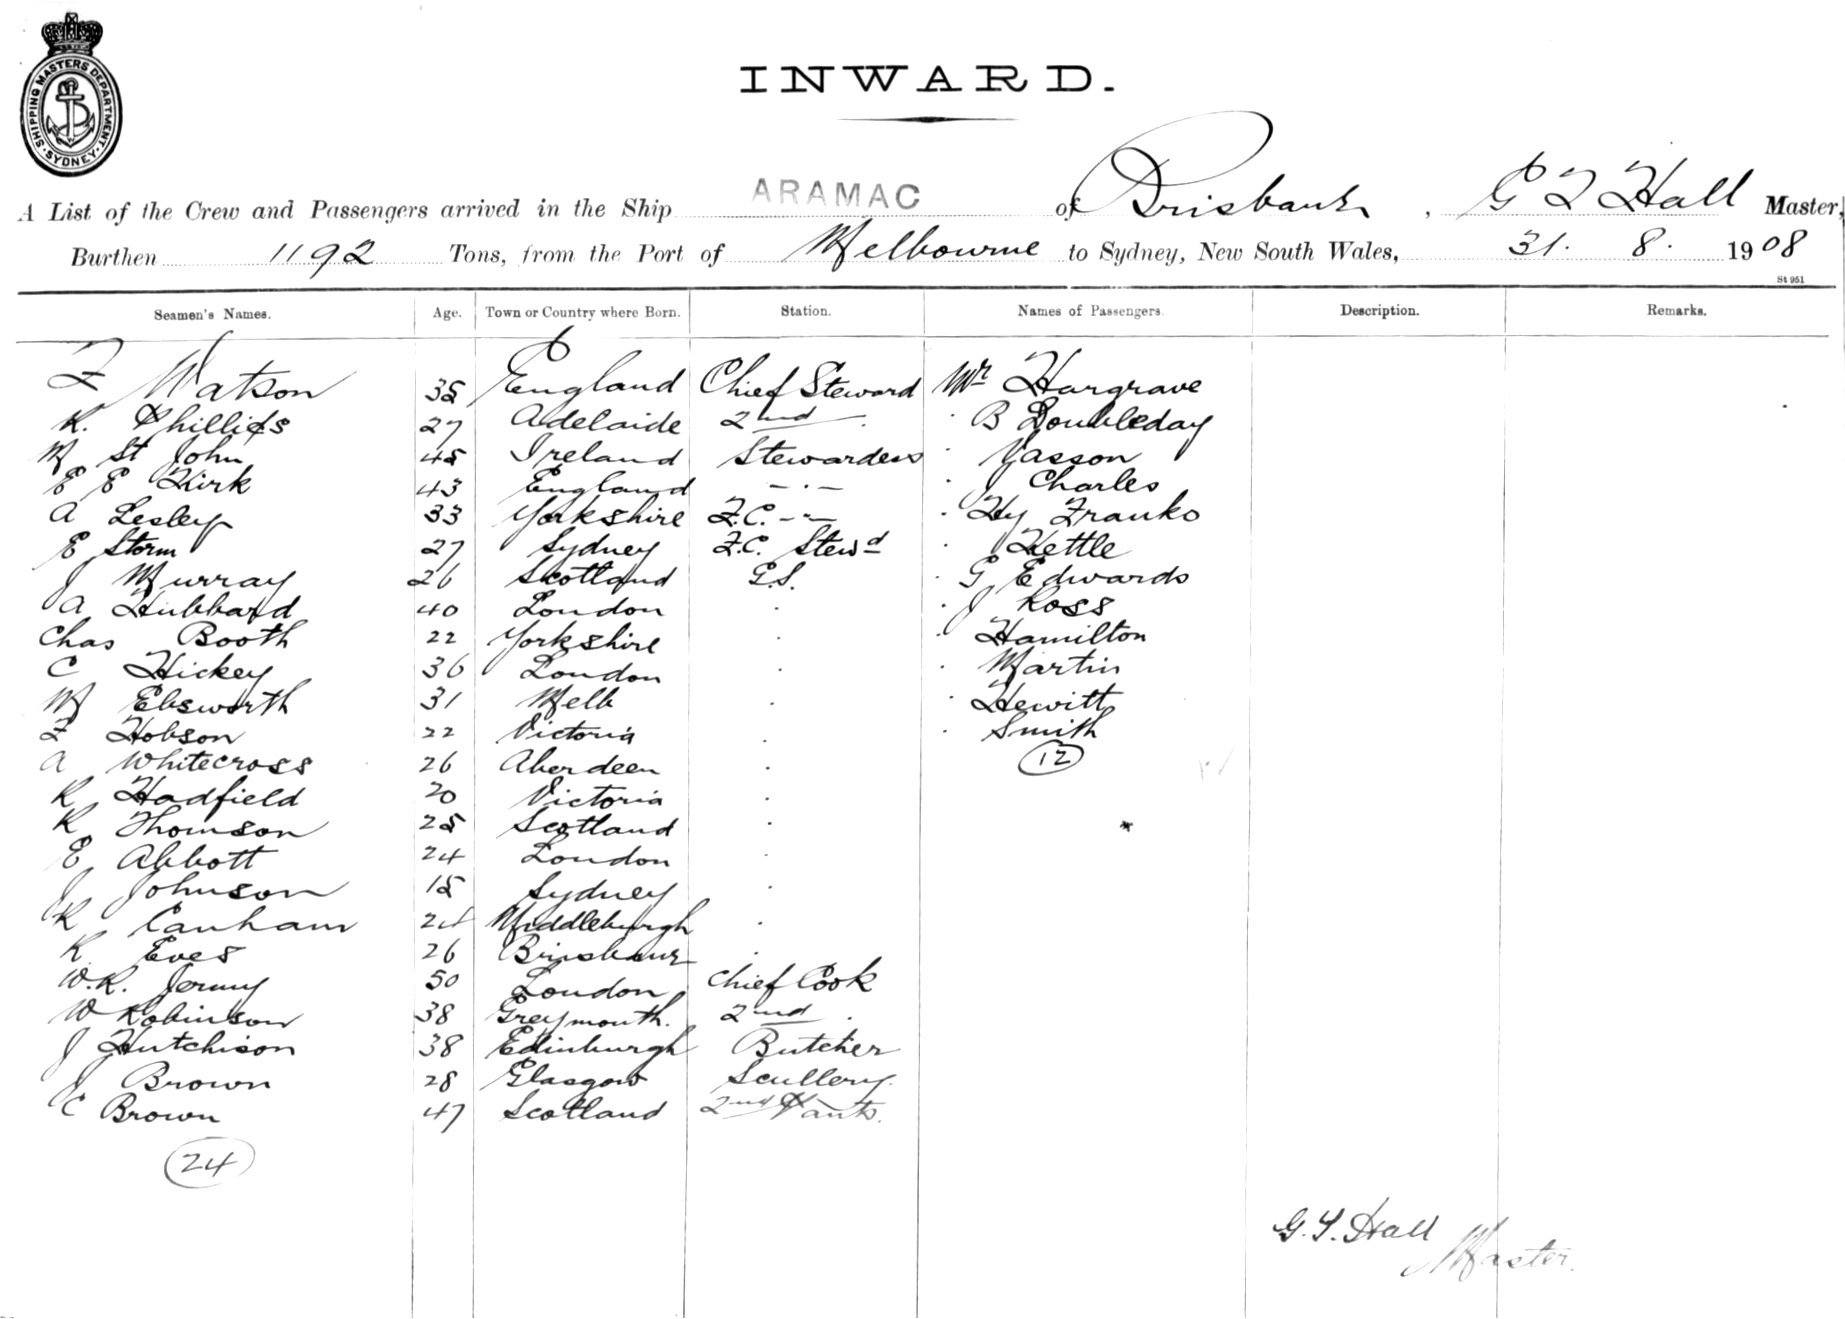 SHIPPING MASTERS DEPARTMENT. SYDNEY
INWARD.
A List of the Crew and Passengers arrived in the Ship ARAMAC of Brisbane, G T Hall Master,
Burthen 1192 Tons, from the Port of Melbourne to Sydney, New South Wales, 31. 8. 1908
St 951
Seamen's Names. Age. Town or Country where Born. Station. Names of Passengers. Description. Remarks.
F Watson 35 England Chief Steward Mr Hargrave
R. Phillips 27 Adelaide 2nd B Doubleday
M St John 45 Ireland Stewardess Vasson
E E Kirk 43 England - . - J Charles
A Lesley 33 Yorkshire F.C. - - Hy Franks
E Storm 27 Sydney F.C. Stewd Kettle
J Murray 26 Scotland G.S. G Edwards
A Hubbard 40 London J Ross
Chas Booth 22 Yorkshire Hamilton
C Hickey 36 London Martin
M Ebsworth 31 Melb Hewitt
F Hobson 22 Victoria Smith
A Whitecross 26 Aberdeen 12
R Hadfield 20 Victoria
R Thomson 25 Scotland
E Abbott 24 London
J Johnson 15 Sydney
R Canham 24 Middleburgh
R Eves 26 Brisbane
W.R. Jermy 50 London Chief Cook
W Robinson 38 Greymouth. 2nd
J Hutchison 38 Edinburgh Butcher
J Brown 28 Glasgow Scullery
C Brown 47 Scotland 2nd Pants.
24
G. T. Hall
Master.